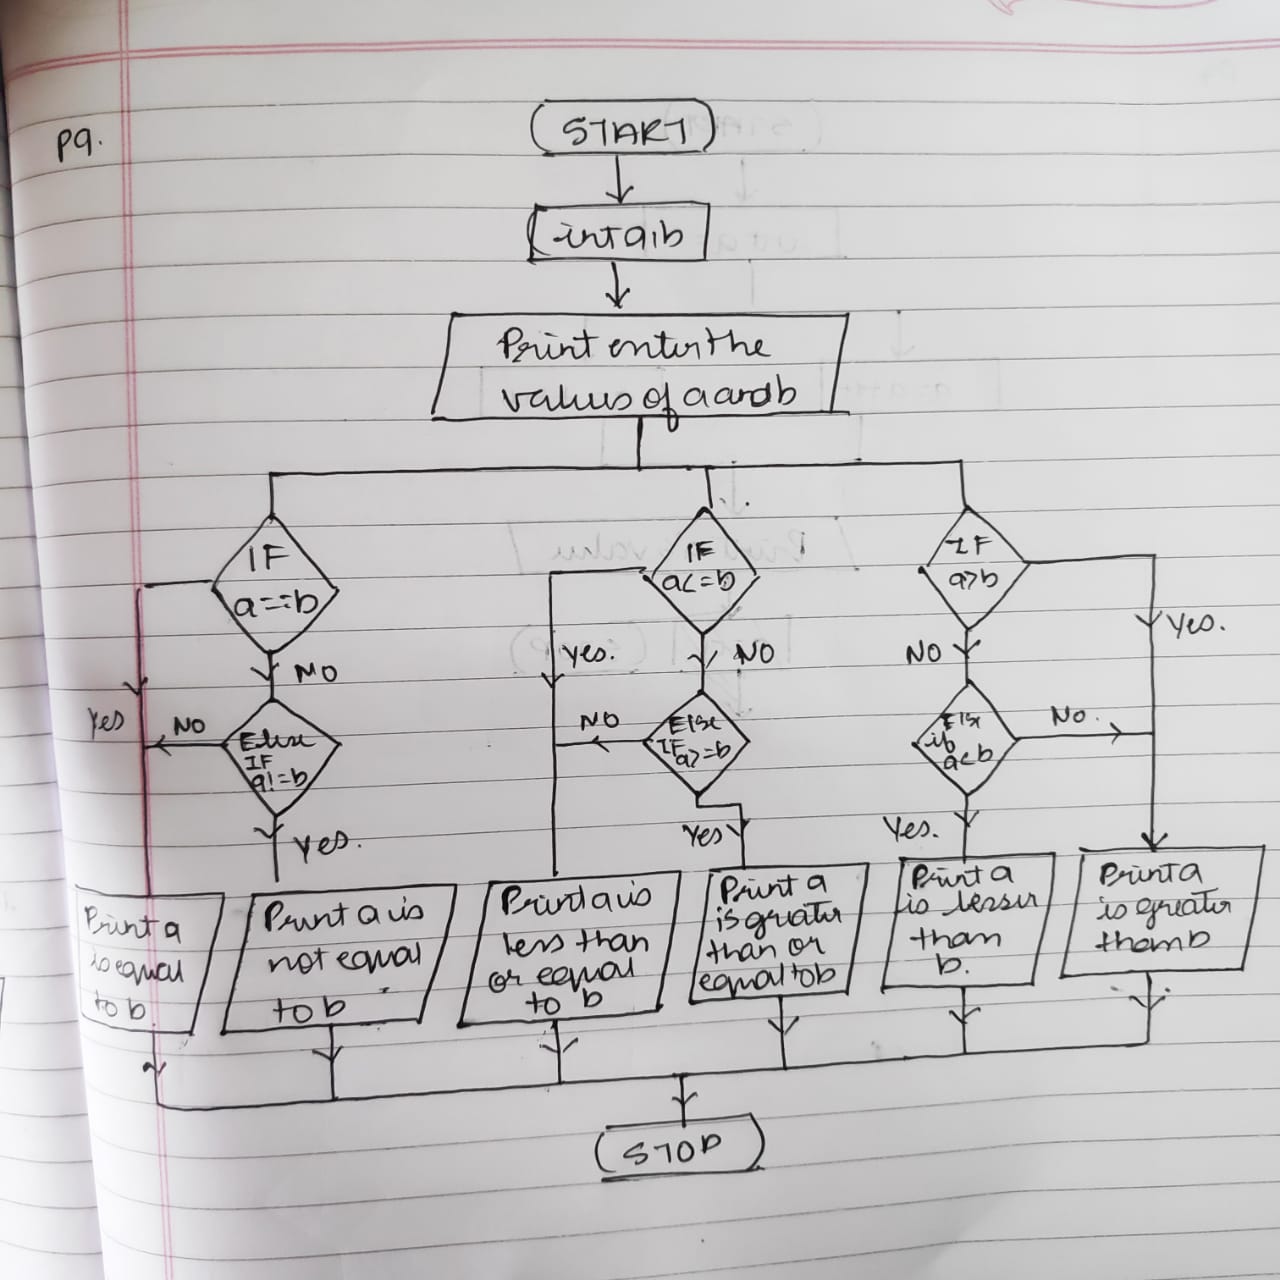 P9.
START
int a,b
Print enter the
values of a and b
IF
a==b
IF
a<=b
IF
a>b
Yes
NO
Yes.
NO
NO
Yes.
NO
Else
IF
a!=b
NO
Else
IF
a>=b
Else
if
a<b
No.
Yes.
Yes
Yes.
Print a
is equal
to b
Print a is
not equal
to b
Print a is
less than
or equal
to b
Print a
is greater
than or
equal to b
Print a
is lesser
than
b.
Print a
is greater
than b
STOP